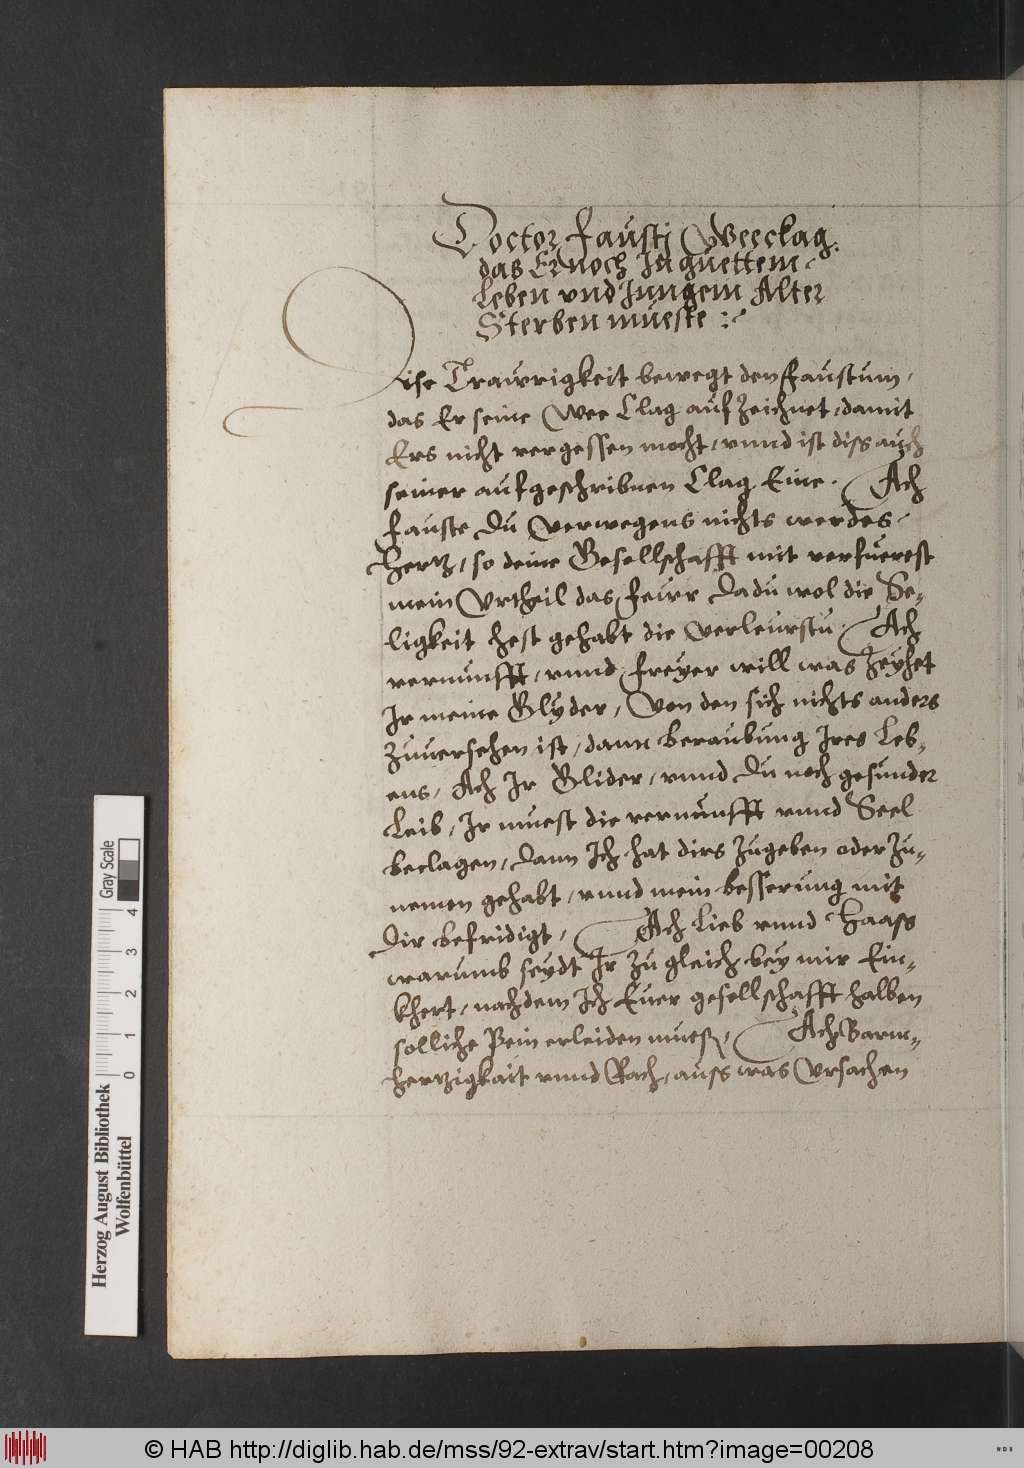 Doctor Faustj Weeclag.
das Er noch Jn guettem
Leben vnd Jungem Alter
Sterben mueste :
Dise Trawrigkeit bewegt den Faustum,
das Er seine Wee Clag aufzeichnet, damit
Ers nicht vergessen mocht, vnnd ist diss auch
seiner aufgeschribnen Clag Eine. Ach
Fauste Du verwegens nichts werdes
Hertz, so deine Gesellschafft mit verfuerest
mein Vrtheil das Feurr Da du wol die Se-
ligkeit hest gehabt die verleurstu. Ach
vernunfft, vnnd freyer will was Zeyhet
Jr meine Glyder, Von den sich nichts anders
zuuersehen ist, dann beraubung Jres Leb-
ens, Ach Jr Glider, vnnd Du noch gesunder
Leib, Jr muest die vernunfft vnnd Seel
beclagen, Dann Jch hat dirs Zugeben oder Zu-
nemen gehabt, vnnd mein besserung mit
Dir befridigt, Ach Lieb vnnd Haass
warumb seydt Jr Zu gleich bey mir Ein-
khert, nachdem Jch Euer gesellschafft halben
solliche Pein erleiden mueß, Ach Barm-
hertzigkait vnnd Rach, auss was Vrsachen
Herzog August Bibliothek
Wolfenbüttel
0 1 2 3 4
Gray Scale
© HAB http://diglib.hab.de/mss/92-extrav/start.htm?image=00208
WDB